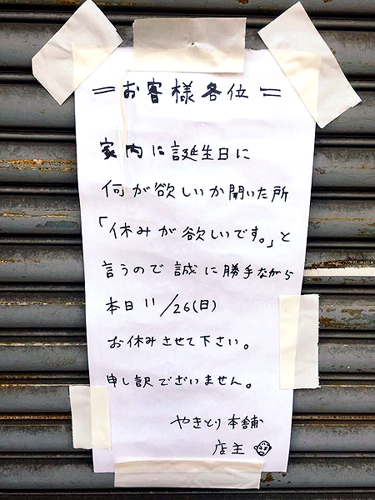 =お客様各位=
家内に誕生日に
何が欲しいか聞いた所
「休みが欲しいです。」と
言うので誠に勝手ながら
本日11/26(日)
お休みさせて下さい。
申し訳ございません。
やきとり本舗
店主